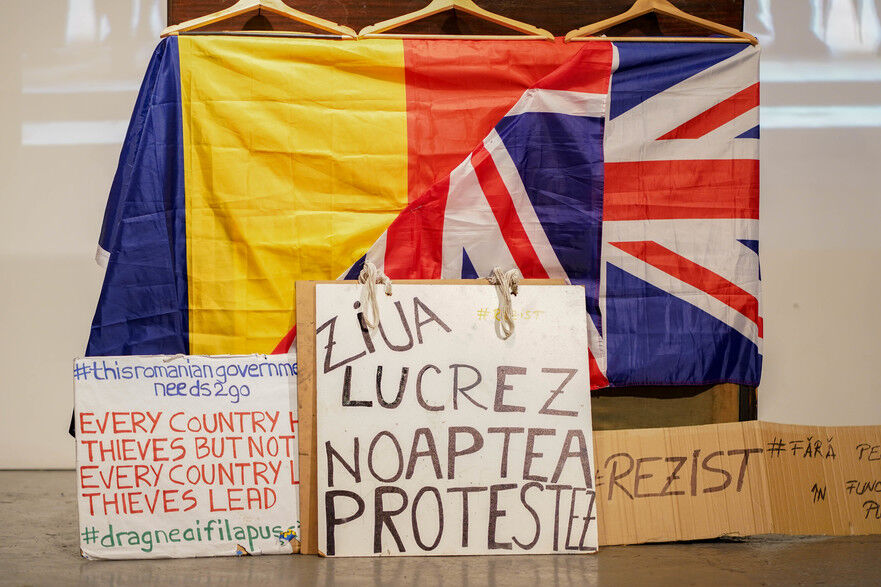 #thisromaniangovernme
needs2go
EVERY COUNTRY H
THIEVES BUT NOT
EVERY COUNTRY L
THIEVES LEAD
#dragneaifilapus
#REZIST
ZIUA
LUCREZ
NOAPTEA
PROTESTEZ
#REZIST
#FĂRĂ PE
ÎN FUNC
PU